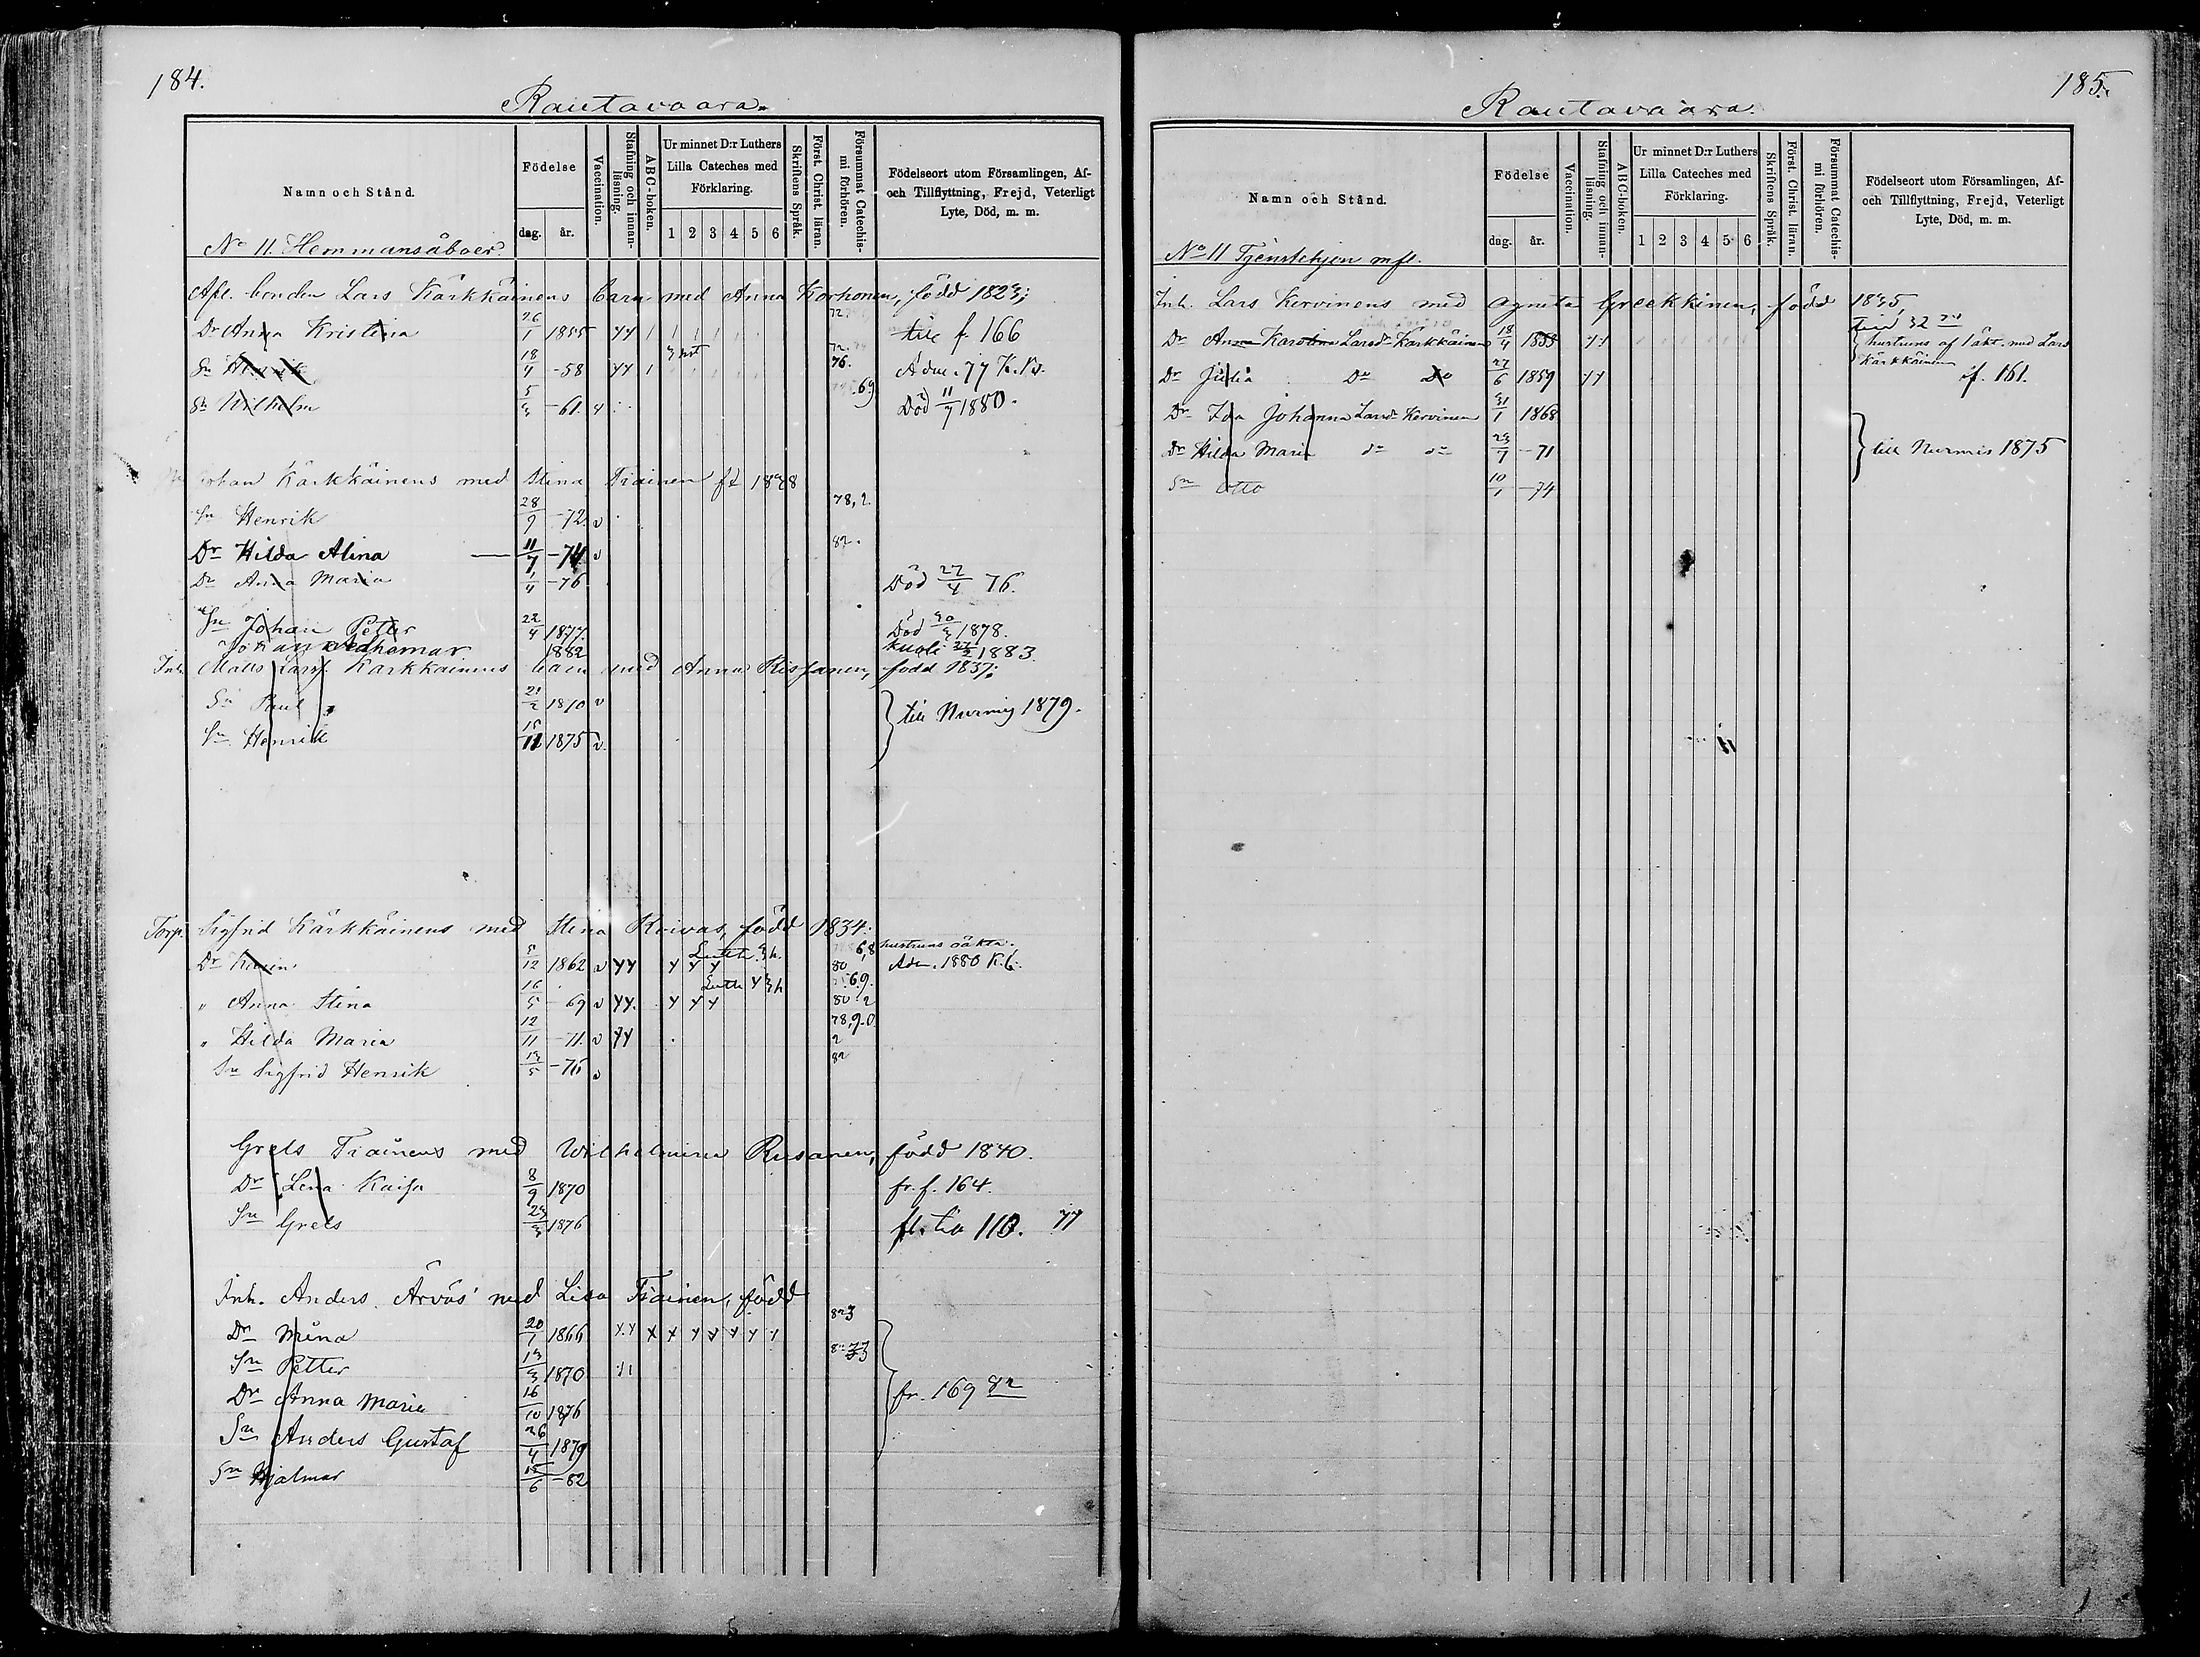 184.
Rautavaara.
Namn och Stånd.
Födelse
dag. år.
Vaccination.
Stafning och innanläsning.
ABC-boken.
Ur minnet D:r Luthers Lilla Cateches med Förklaring.
1 2 3 4 5 6
Skriftens Språk.
Först. Christ. läran.
Försummat Catechismi förhören.
Födelseort utom Församlingen, Af- och Tillflyttning, Frejd, Veterligt Lyte, Död, m. m.
No 11. Hemmansåboer.
Afl. bonden Lars Kärkkäinens barn med Anna Korhonen, född 1823;
Dr Anna Kristina 26/1 1855 yy 72. till f. 166
Sn Henrik 18/4 -58 yy 76. Adm. 77 K.B.
Sn Wilhelm 5/3 -61. 69 Död 11/7 1880.
Johan Kärkkäinens med Stina Tiainen fd 1848
Sn Henrik 28/9 -72. v 78,2.
Dr Hilda Alina 11/7 -74 v 82.
Dr Anna Maria 1/4 -76 Död 27/4 76.
Sn Johan Petter 22/4 1877. Död 30/3 1878.
Johan Adhemar 1882 kuoli 27/2 1883.
Inh. Matts Larss. Kärkkäinens barn med Anna född 1837;
Sn Paul 21/2 1870 v
till Nurmis 1879.
Sn Henrik 15/11 1875 v.
Torp. Sigfrid Kärkkäinens med Stina Koivas, född 1834.
Dr Karin 5/12 1862 v yy y y y Luth. 3 h. 6,8 80 hustruns oäkta. Adm. 1880 K.b.
" Anna Stina 16/5 -69 v yy. y y y Luth y 3 h 69. 80 2
" Hilda Maria 12/11 -71. v yy 78,9.0 2
Sn Sigfrid Henrik 13/5 -76 v 82
Grels Tiainens med Wilhelmina Rusanen, född 1840.
Dr Lena Kaisa 8/9 1870 fr. f. 164.
Sn Grels 23/3 1876 fl. till 110. 77
Inh. Anders Årvås med Lisa Tiainen, född
Dr Mina 20/7 1866 y.y x x y y y y y 823
Sn Petter 13/3 1870
Dr Anna Maria 16/10 1876
fr. 169 82
Sn Anders Gustaf 26/4 1879
Sn Hjalmar 15/6 -82
185.
Rautavaara.
Namn och Stånd.
Födelse
dag. år.
Vaccination.
Stafning och innanläsning.
ABC-boken.
Ur minnet D:r Luthers Lilla Cateches med Förklaring.
1 2 3 4 5 6
Skriftens Språk.
Först. Christ. läran.
Försummat Catechismi förhören.
Födelseort utom Församlingen, Af- och Tillflyttning, Frejd, Veterligt Lyte, Död, m. m.
No 11 Tjenstehjon mfl.
Inh. Lars Kervinens med Agneta Greckkinen, född 1835,
Dr Anna Karolina Larsdr Kärkkäinen 18/4 1855 yy 32
hustruns af 1 äkt. med Lars Kärkkäinen
Dr Julia Do Do 27/6 1859 yy f. 161.
Dr Ida Johanna Larsdr Kervinen 31/1 1868
Dr Hilda Maria do do 23/7 -71
till Nurmis 1875
Sn Otto 10/1 -74